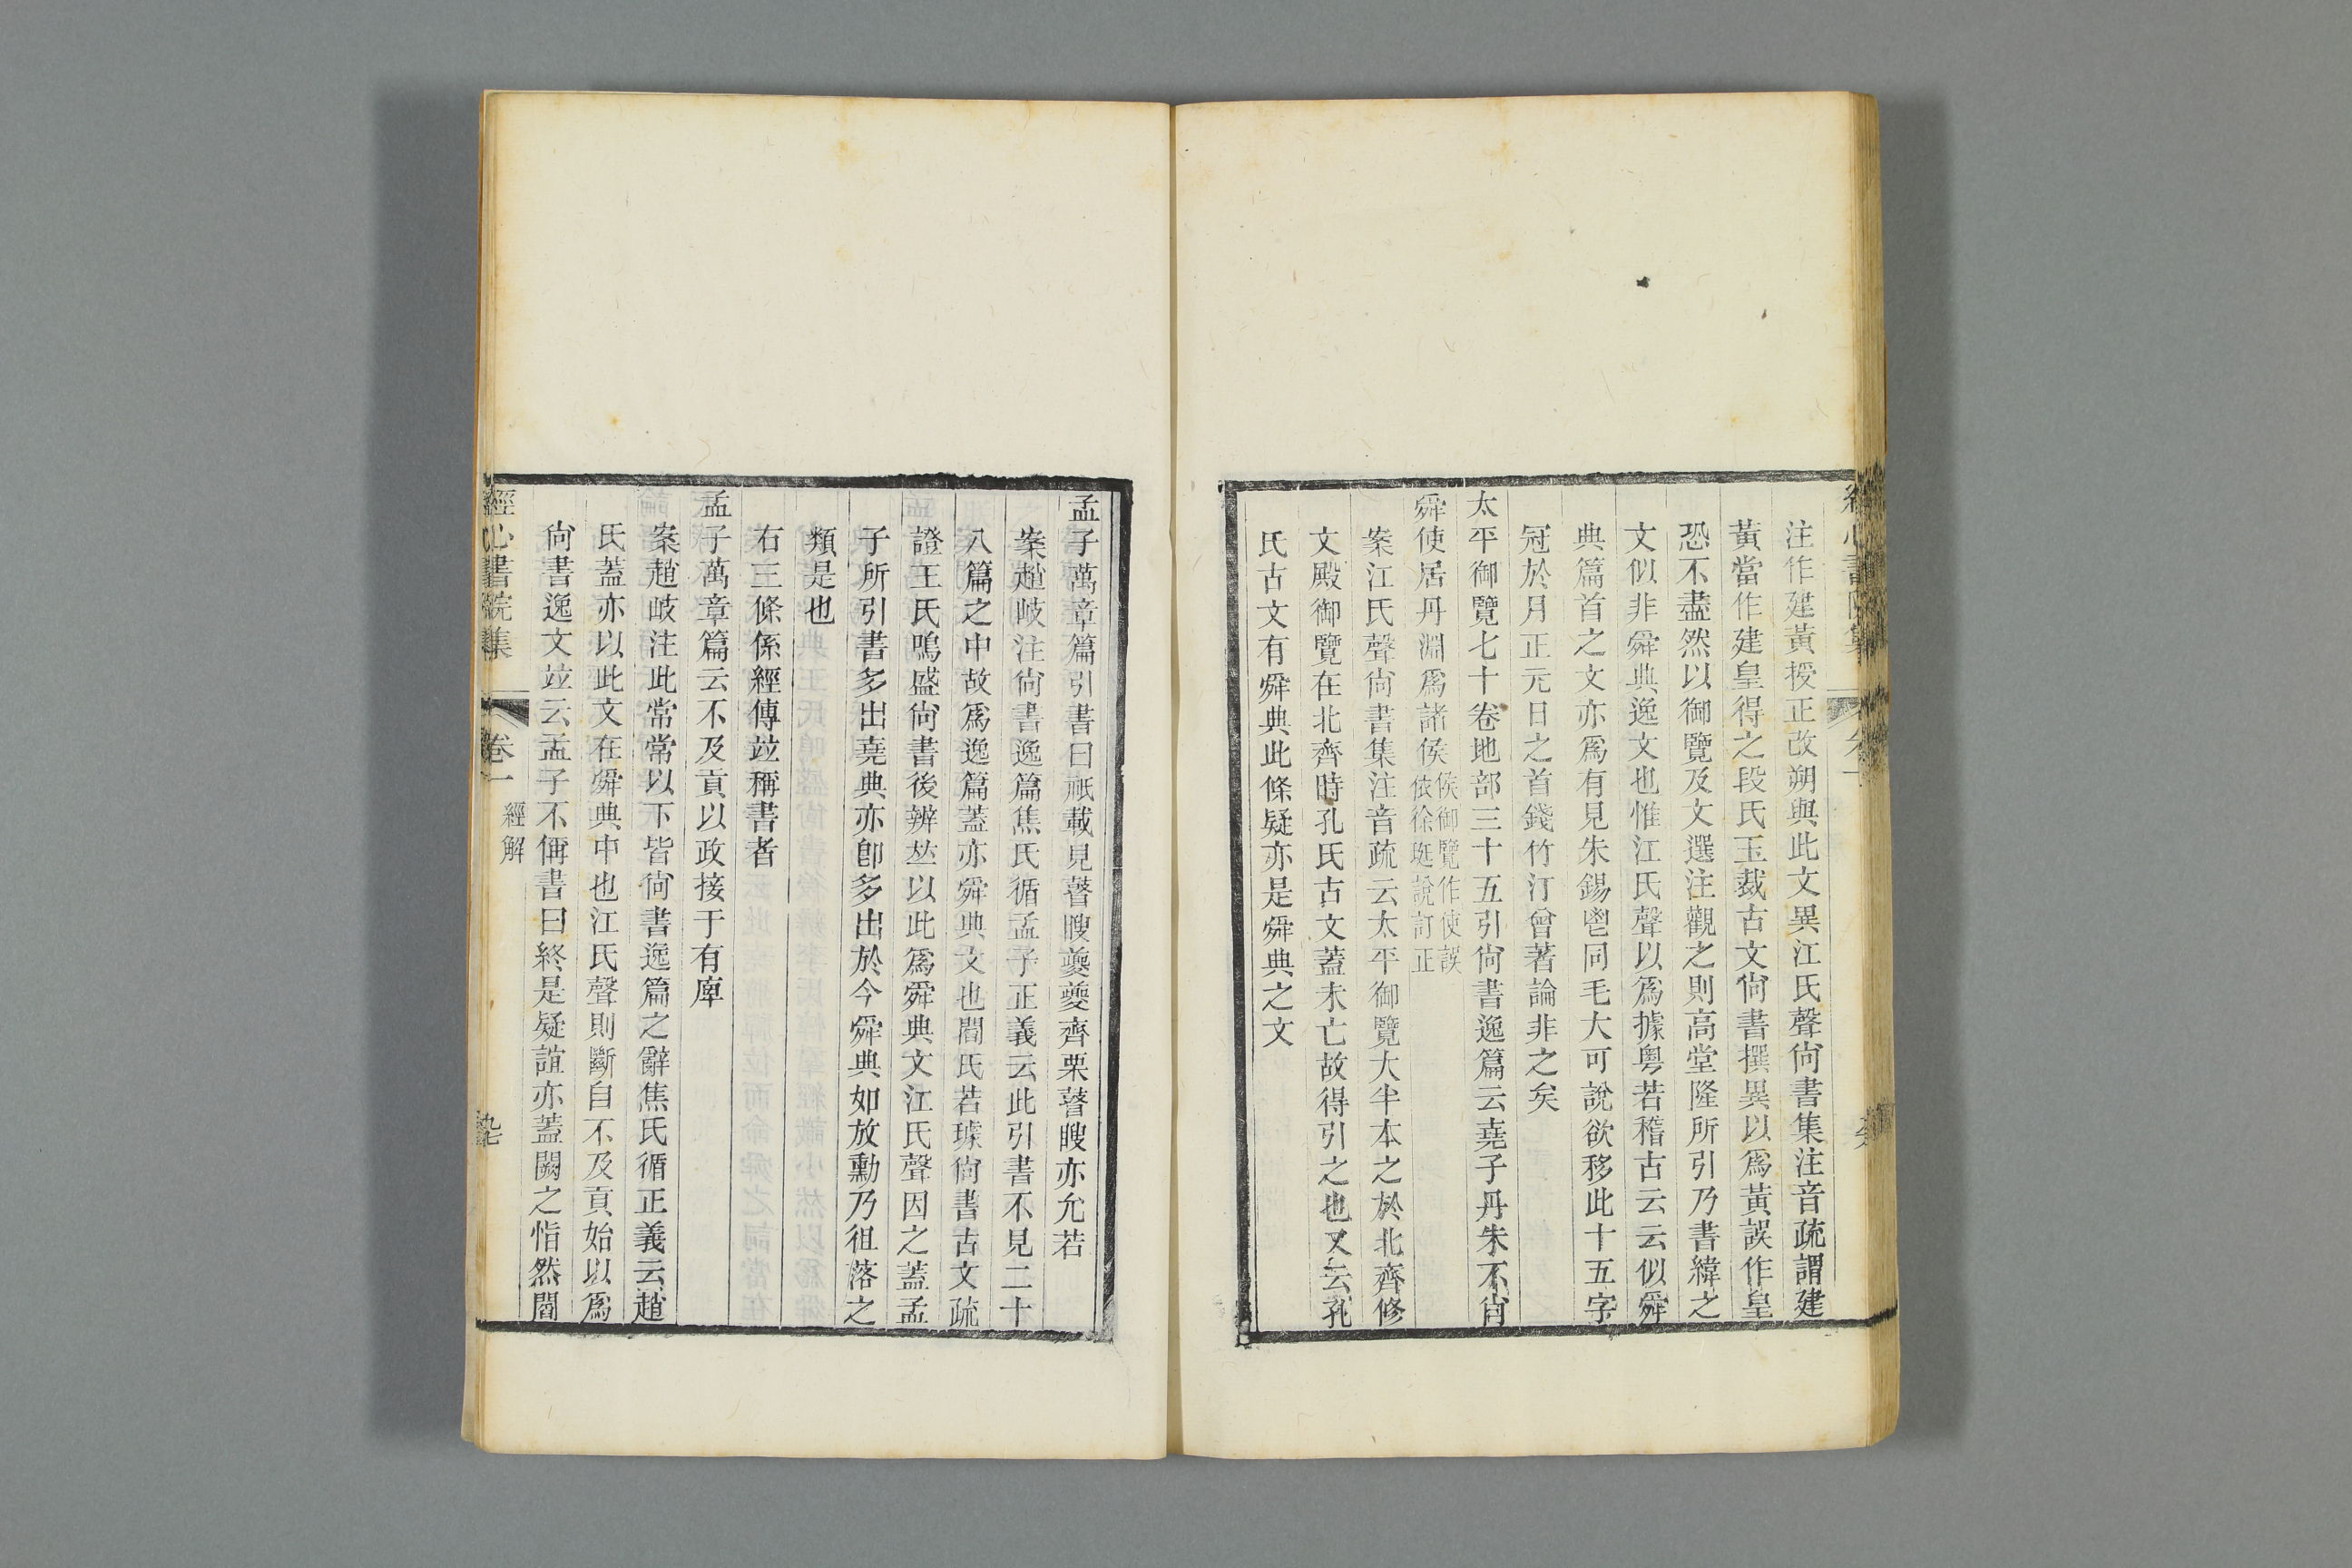 經心書院集
注作建黃授正改朔與此文異江氏聲尙書集注音疏謂建
黃當作建皇得之段氏玉裁古文尙書撰異以爲黃誤作皇
恐不盡然以御覽及文選注觀之則高堂隆所引乃書緯之
文似非舜典逸文也惟江氏聲以爲據粤若稽古云云似舜
典篇首之文亦爲有見朱錫鬯同毛大可說欲移此十五字
冠於月正元日之首錢竹汀曾著論非之矣
太平御覽七十卷地部三十五引尙書逸篇云堯子丹朱不肖
舜使居丹淵爲諸侯侯御覽作使誤依徐珽說訂正
案江氏聲尙書集注音疏云太平御覽大半本之於北齊修
文殿御覽在北齊時孔氏古文蓋未亡故得引之也又云孔
氏古文有舜典此條疑亦是舜典之文
孟子萬章篇引書曰祇載見瞽瞍夔夔齊栗瞽瞍亦允若
案趙岐注尙書逸篇焦氏循孟子正義云此引書不見二十
八篇之中故爲逸篇蓋亦舜典文也閻氏若璩尙書古文疏
證王氏鳴盛尙書後辨竝以此爲舜典文江氏聲因之蓋孟
子所引書多出堯典亦卽多出於今舜典如放勳乃徂落之
類是也
右三條係經傳竝稱書者
孟子萬章篇云不及貢以政接于有庳
案趙岐注此常常以下皆尙書逸篇之辭焦氏循正義云趙
氏蓋亦以此文在舜典中也江氏聲則斷自不及貢始以爲
尙書逸文竝云孟子不偁書曰終是疑誼亦蓋闕之恉然閻
經心書院集
卷一
經解